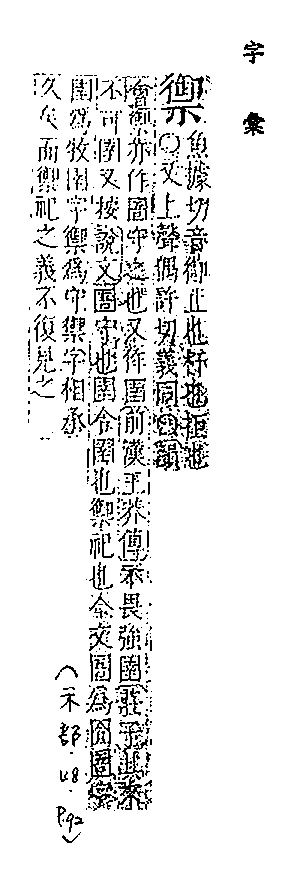 字彙
禦魚據切音御止也扞也拒也
○又上聲偶許切義同○韻
會禦亦作圄守之也又作圉前漢王莽傳不畏強圉莊子其來
不可圉又按說文圄守也圉令圄也禦祀也今文圄為囹圄字
圉為牧圉字禦為守禦字相承
久矣而禦祀之義不復見之
(示部.48.P.92)